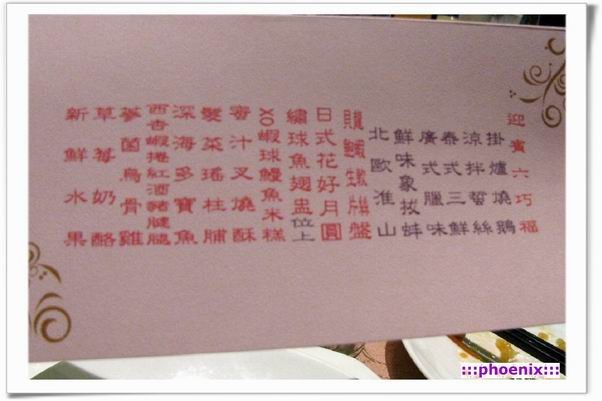 迎賓六巧福
掛爐燒鵝
涼拌蜇絲
泰式三鮮
廣式臘味
鮮味象拔蚌
北歐淮山
龍蝦生蠔拼盤
日式花好月圓
繡球魚翅盅位上
XO蝦球鰻魚米糕
蜜汁叉燒酥
髮菜瑤柱脯
深海多寶魚
西杏蝦捲紅酒豬腱腿
蔘菌烏骨雞
草莓奶酪
新鮮水果
:::phoenix:::